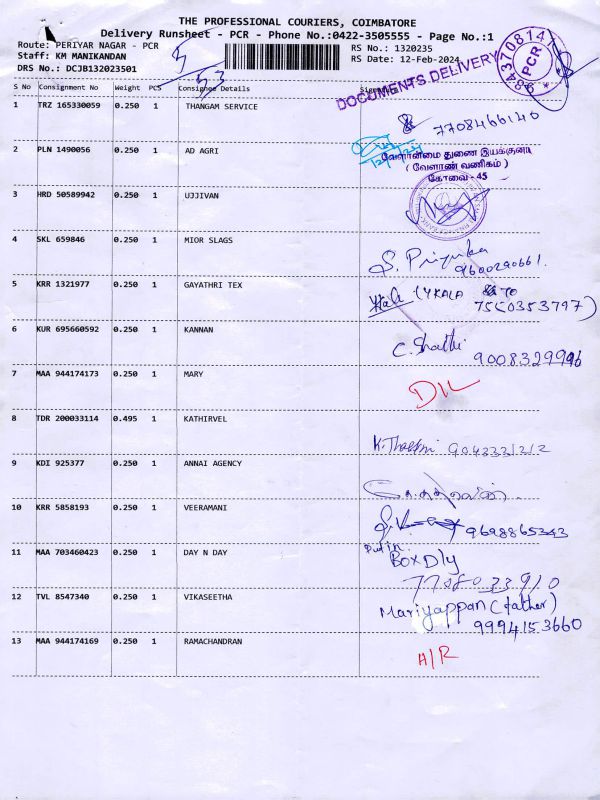 THE PROFESSIONAL COURIERS, COIMBATORE
Delivery Runsheet - PCR - Phone No.:0422-3505555 - Page No.:1
Route: PERIYAR NAGAR - PCR
RS No.: 1320235
Staff: KM MANIKANDAN
RS Date: 12-Feb-2024
DRS No.: DCJB132023501
53
DOCUMENTS DELIVERY
9843708147
PCR
S No Consignment No Weight PCS Consignee Details Signature
1 TRZ 165330059 0.250 1 THANGAM SERVICE 7708466140
2 PLN 1490056 0.250 1 AD AGRI
வேளாண்மை துணை இயக்குனர்
( வேளாண் வணிகம் )
கோவை - 45
3 HRD 50589942 0.250 1 UJJIVAN
4 SKL 659846 0.250 1 MIOR SLAGS S. Priyanka
9600290661.
5 KRR 1321977 0.250 1 GAYATHRI TEX Kala (YKALA TO
7550353797)
6 KUR 695660592 0.250 1 KANNAN C. Shathi
9008329996
7 MAA 944174173 0.250 1 MARY DIL
8 TDR 200033114 0.495 1 KATHIRVEL K. Thaemi 9043331212
9 KDI 925377 0.250 1 ANNAI AGENCY
10 KRR 5858193 0.250 1 VEERAMANI 9698865343
11 MAA 703460423 0.250 1 DAY N DAY Put in.
BOX Dly
7708033910
12 TVL 8547340 0.250 1 VIKASEETHA Mariyappan (father)
9994153660
13 MAA 944174169 0.250 1 RAMACHANDRAN A/R